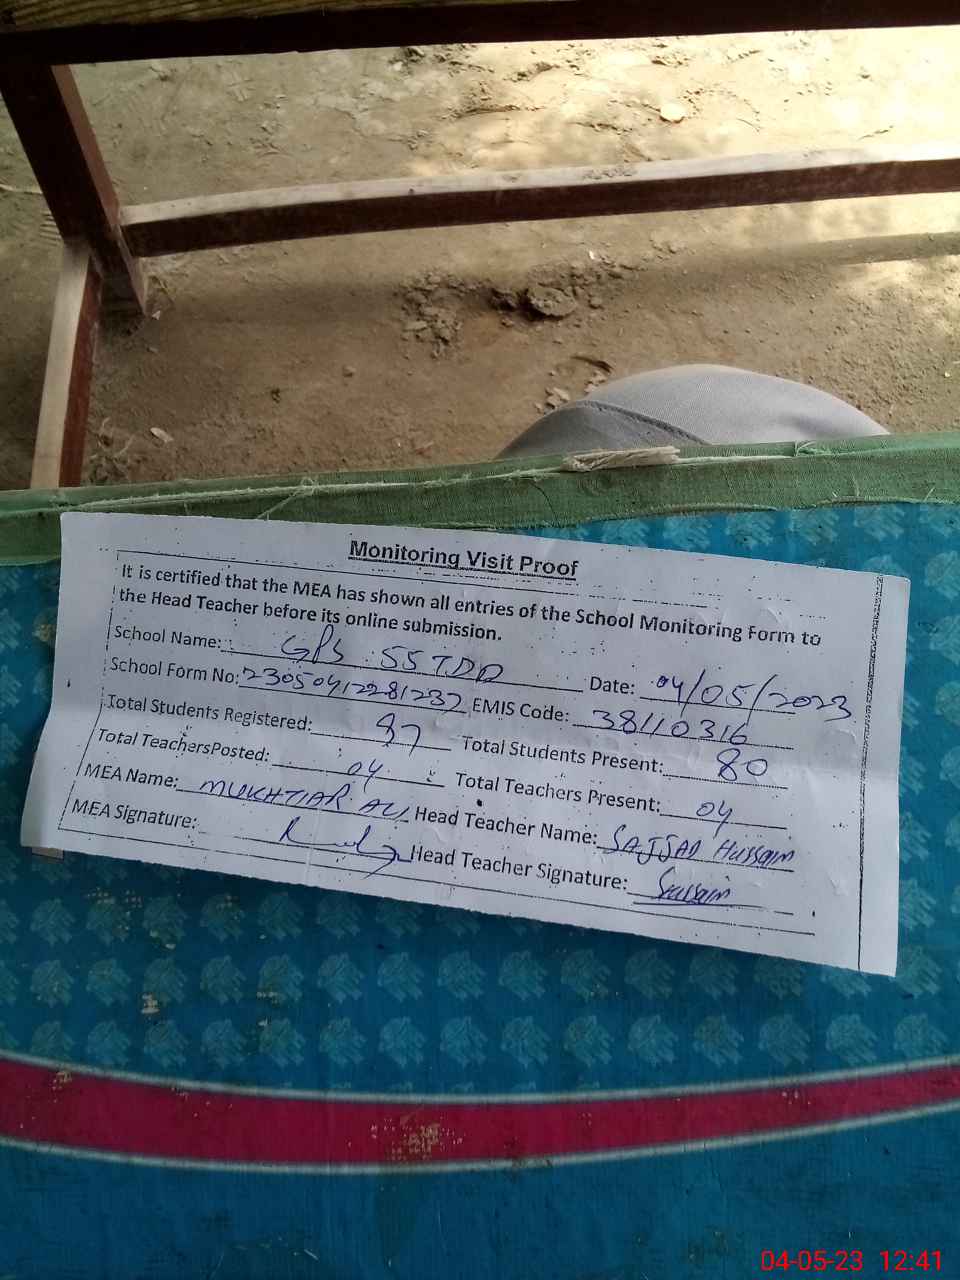 Monitoring Visit Proof
It is certified that the MEA has shown all entries of the School Monitoring Form to
the Head Teacher before its online submission.
School Name: GPS 55 TDA Date: 04/05/2023
School Form No: 23050412281232 EMIS Code: 38110316
Total Students Registered: 97 Total Students Present: 80
Total TeachersPosted: 04 Total Teachers Present: 04
MEA Name: MUKHTIAR ALI Head Teacher Name: SAJJAD Hussain
MEA Signature: Head Teacher Signature: Hussain
04-05-23 12:41